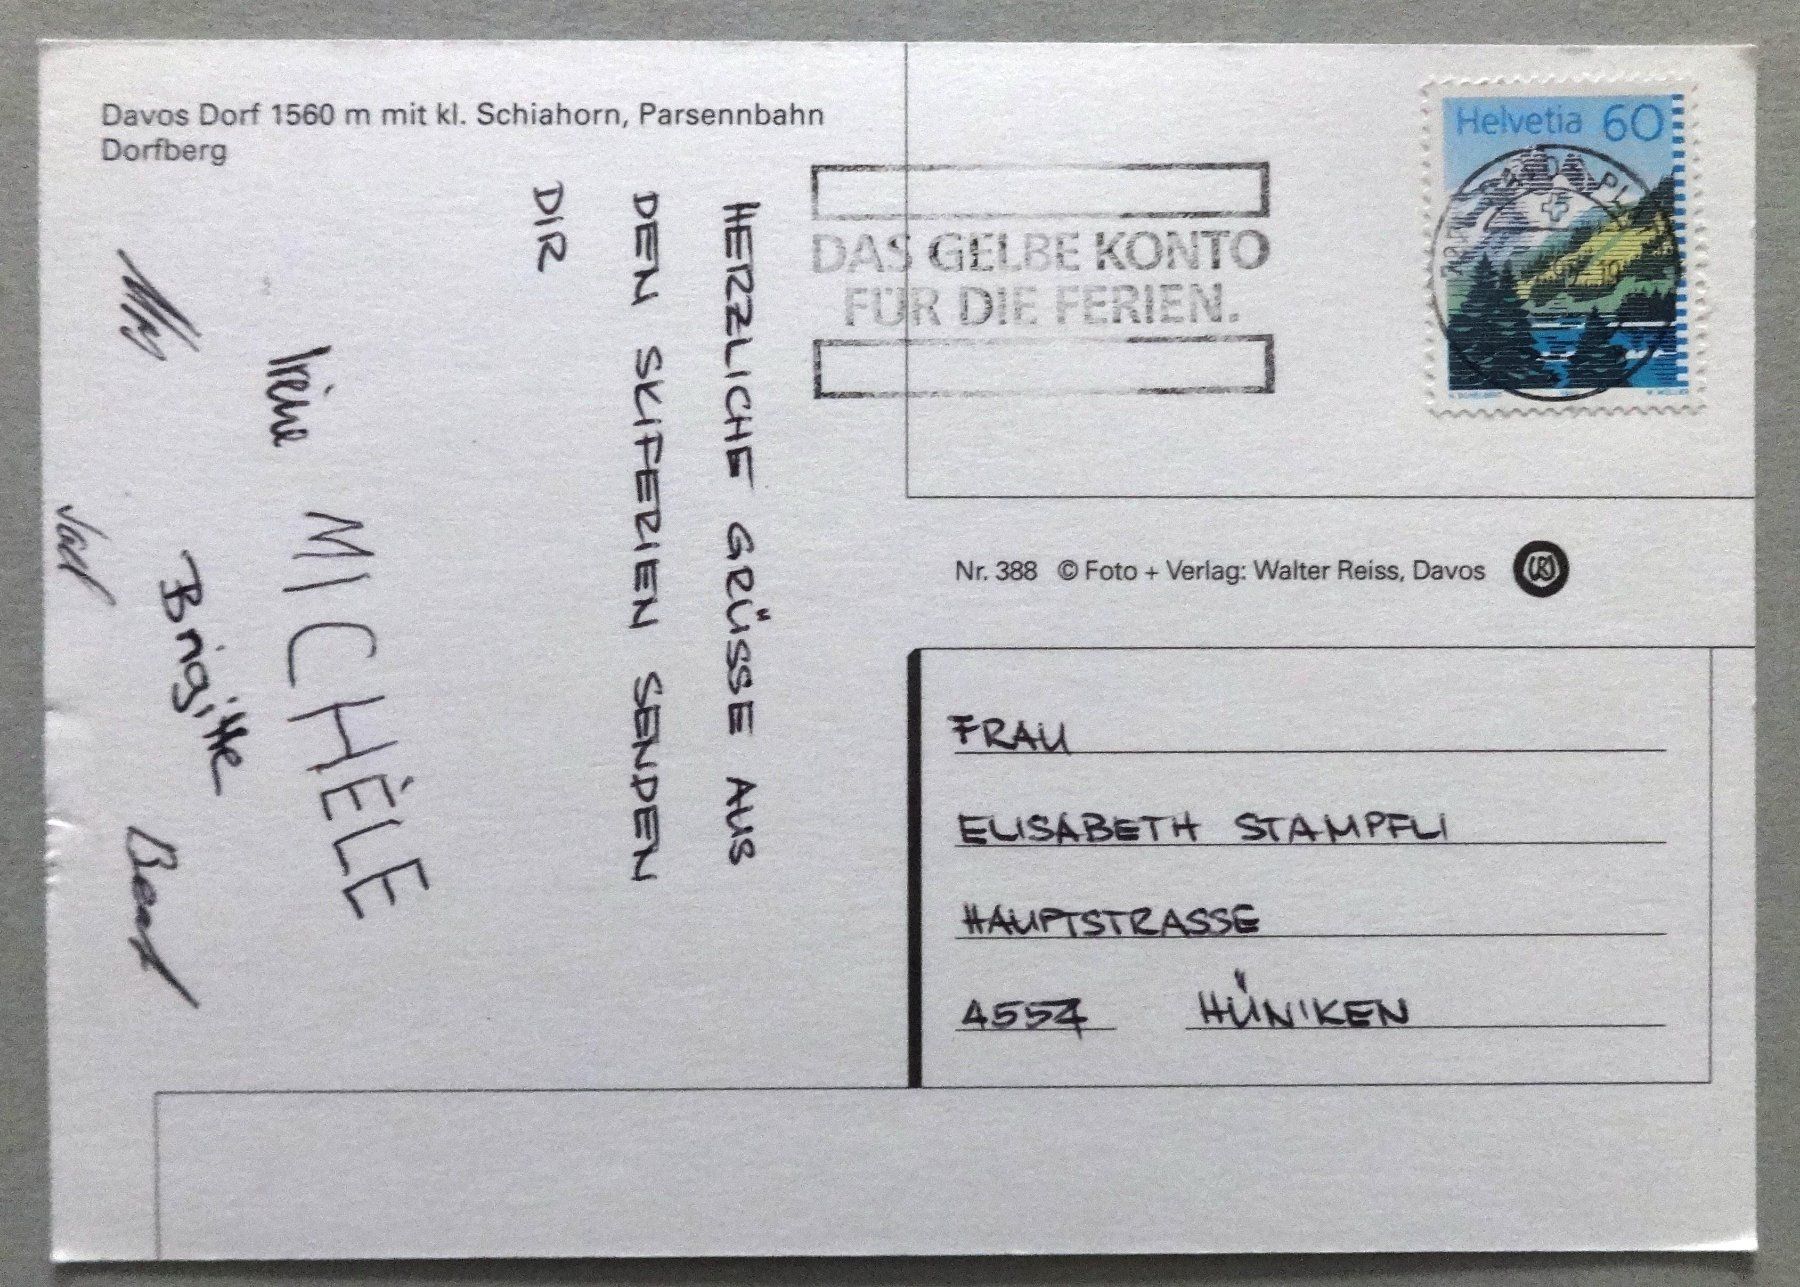 Davos Dorf 1560 m mit kl. Schiahorn, Parsennbahn
Dorfberg
HERZLICHE GRÜSSE AUS
DEN SKIFERIEN SENDEN
DIR
Irène
MICHÈLE
Brigitte
DAS GELBE KONTO
FÜR DIE FERIEN.
Helvetia 60
Nr. 388 © Foto + Verlag: Walter Reiss, Davos
FRAU
ELISABETH STAMPFLI
HAUPTSTRASSE
4554 HÜNIKEN